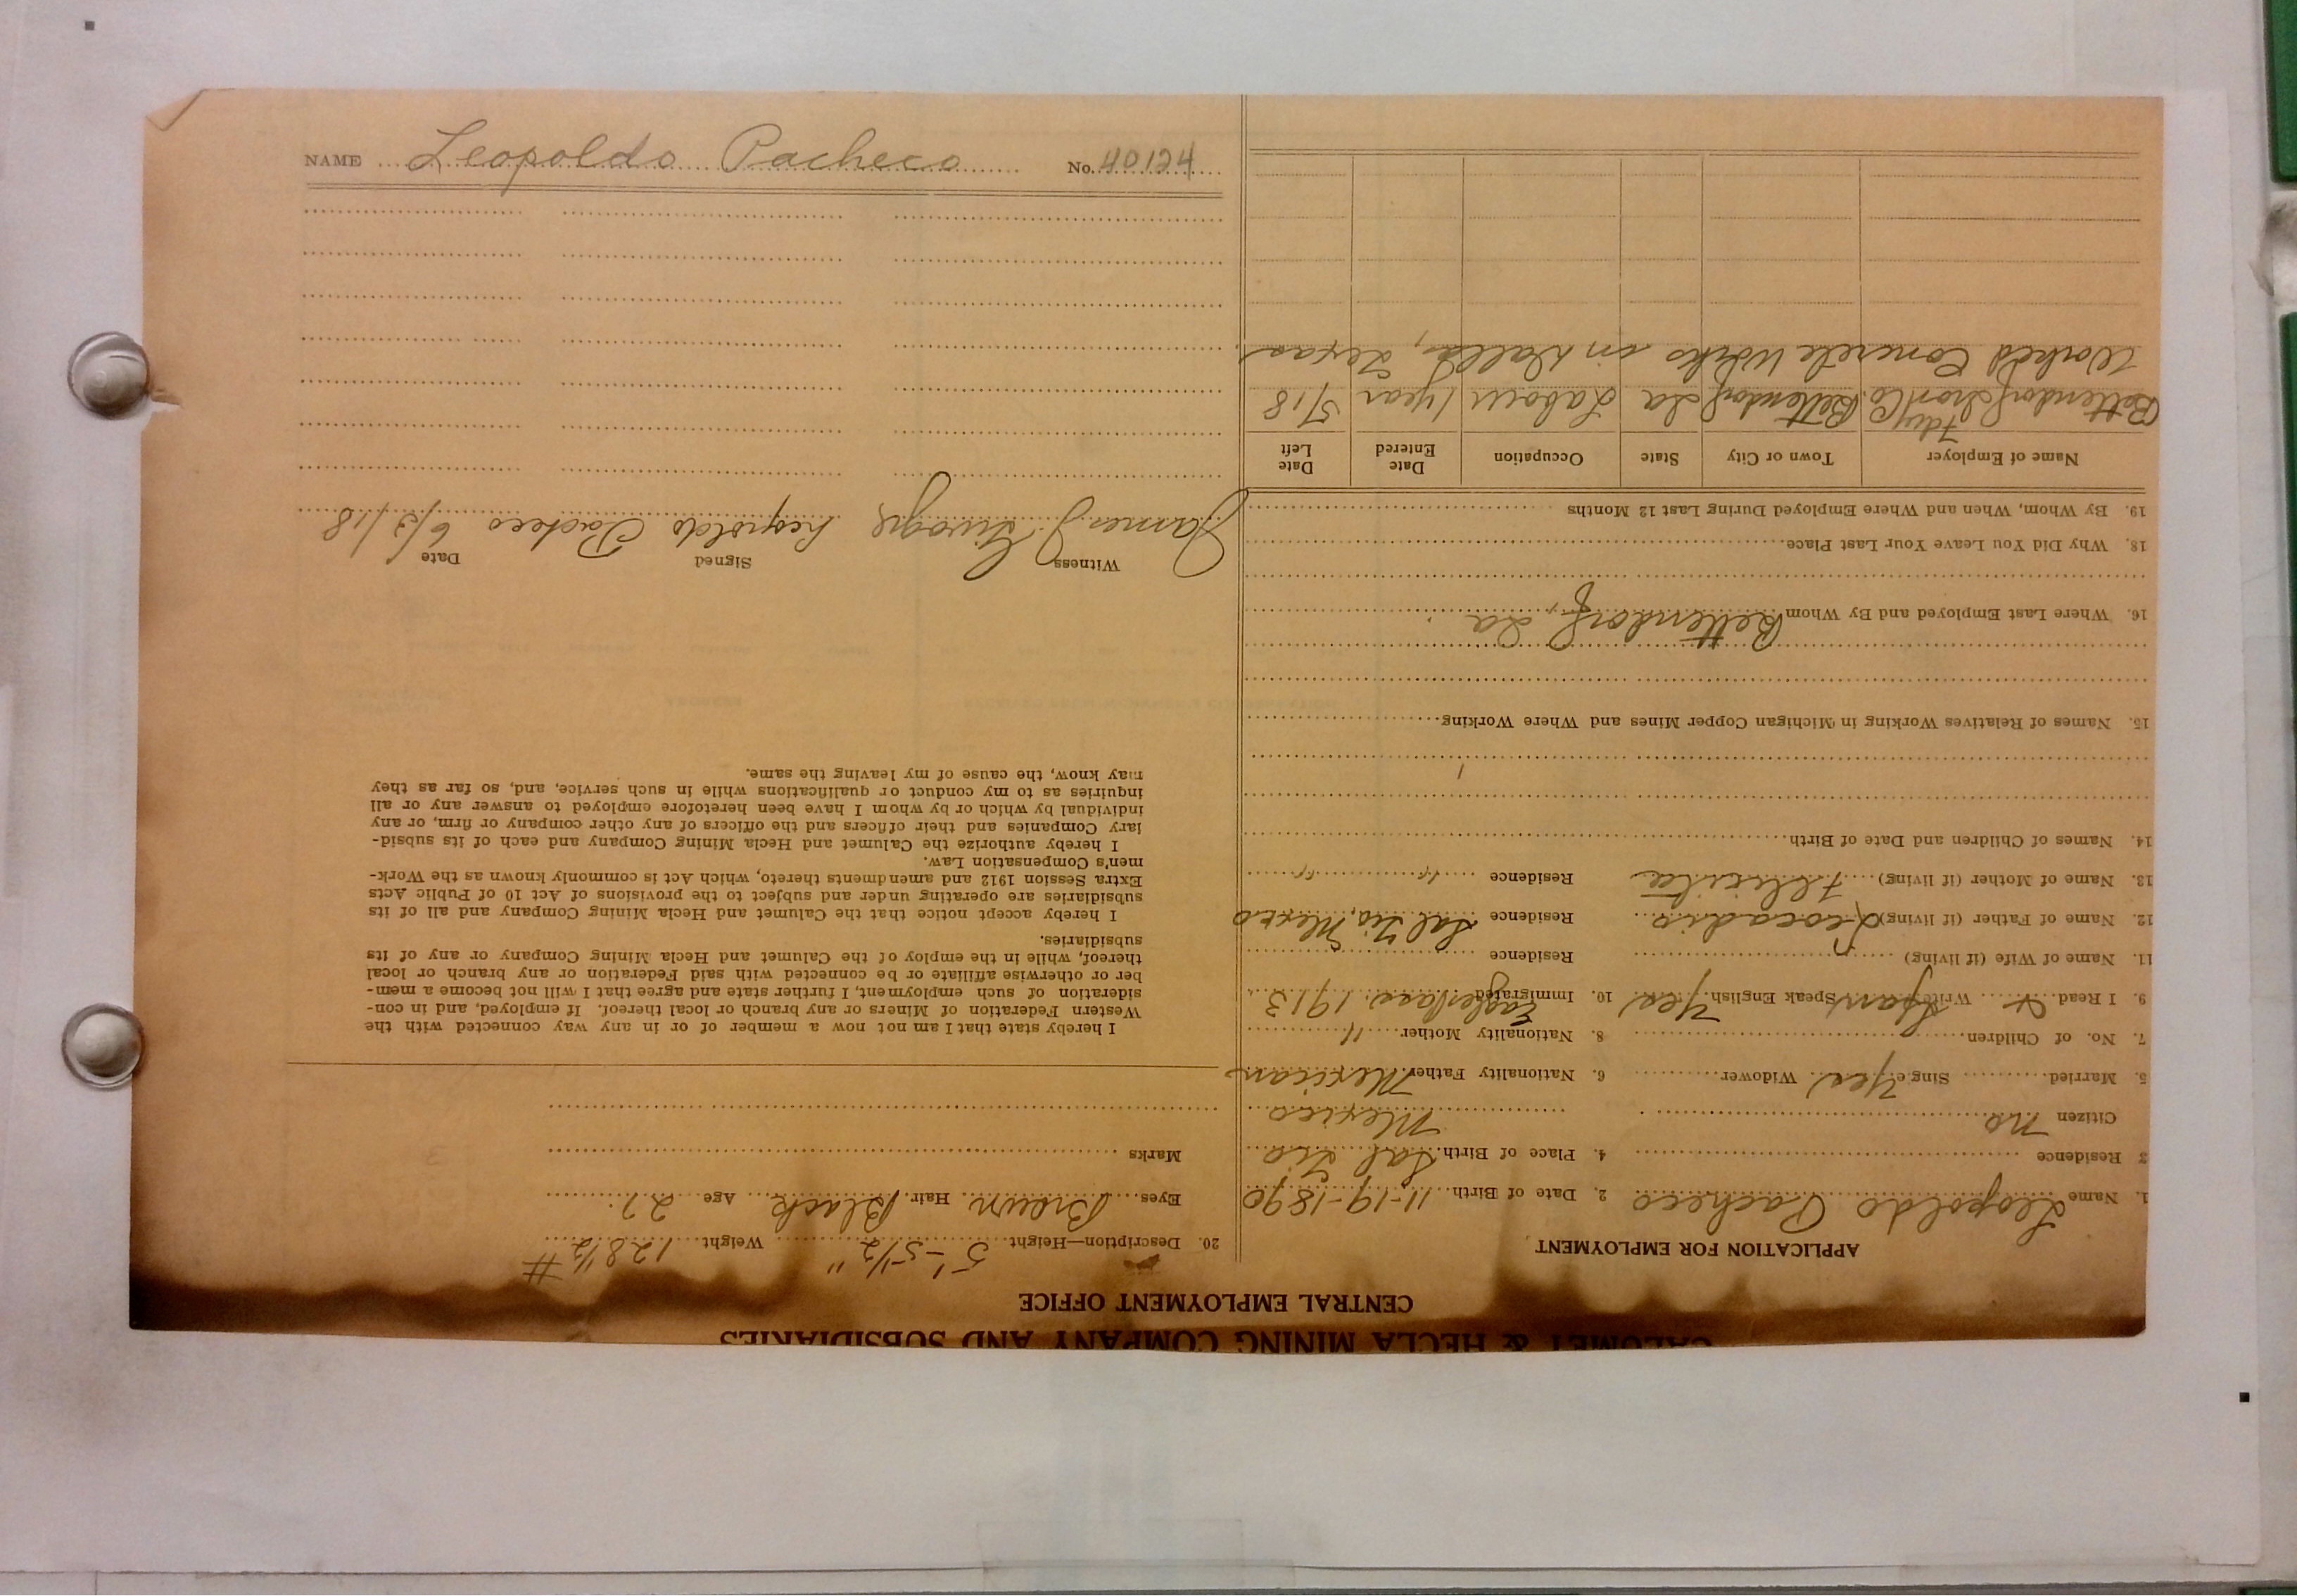 NAME Leopoldo Pacheco No. 40124
CALUMET & HECLA MINING COMPANY AND SUBSIDIARIES
CENTRAL EMPLOYMENT OFFICE
APPLICATION FOR EMPLOYMENT
1. Name Leopoldo Pacheco 2. Date of Birth 11-19-1890
3 Residence 4. Place of Birth Sal Tio
Citizen no Mexico
5. Married Single Yes Widower 6. Nationality Father Mexican
7. No. of Children 8. Nationality Mother "
9. I Read & Write Span Speak English Yes 10. Immigrated Eagle Pass 1913
11. Name of Wife (if living) Residence
12. Name of Father (if living) Leocadio Residence Sal Tio, Mexico
13. Name of Mother (if living) Felicita Residence " "
14. Names of Children and Date of Birth
15. Names of Relatives Working in Michigan Copper Mines and Where Working
16. Where Last Employed and By Whom Bettendorf, Ia
18. Why Did You Leave Your Last Place
19. By Whom, When and Where Employed During Last 12 Months
Name of Employer Town or City State Occupation Date Entered Date Left
Bettendorf Iron Co. Bettendorf Ia Labour 1 year 5/18
Fdry Co
Worked Concrete Works in Dallas, Texas
20. Description—Height 5'-5 1/2" Weight 128 1/2 #
Eyes Brown Hair Black Age 27.
Marks
I hereby state that I am not now a member of or in any way connected with the
Western Federation of Miners or any branch or local thereof. If employed, and in con-
sideration of such employment, I further state and agree that I will not become a mem-
ber or otherwise affiliate or be connected with said Federation or any branch or local
thereof, while in the employ of the Calumet and Hecla Mining Company or any of its
subsidiaries.
I hereby accept notice that the Calumet and Hecla Mining Company and all of its
subsidiaries are operating under and subject to the provisions of Act 10 of Public Acts
Extra Session 1912 and amendments thereto, which Act is commonly known as the Work-
men's Compensation Law.
I hereby authorize the Calumet and Hecla Mining Company and each of its subsid-
iary Companies and their officers and the officers of any other company or firm, or any
individual by which or by whom I have been heretofore employed to answer any or all
inquiries as to my conduct or qualifications while in such service, and, so far as they
may know, the cause of my leaving the same.
Witness Signed Date
James J. Leopoldo Pacheco 6/3/18